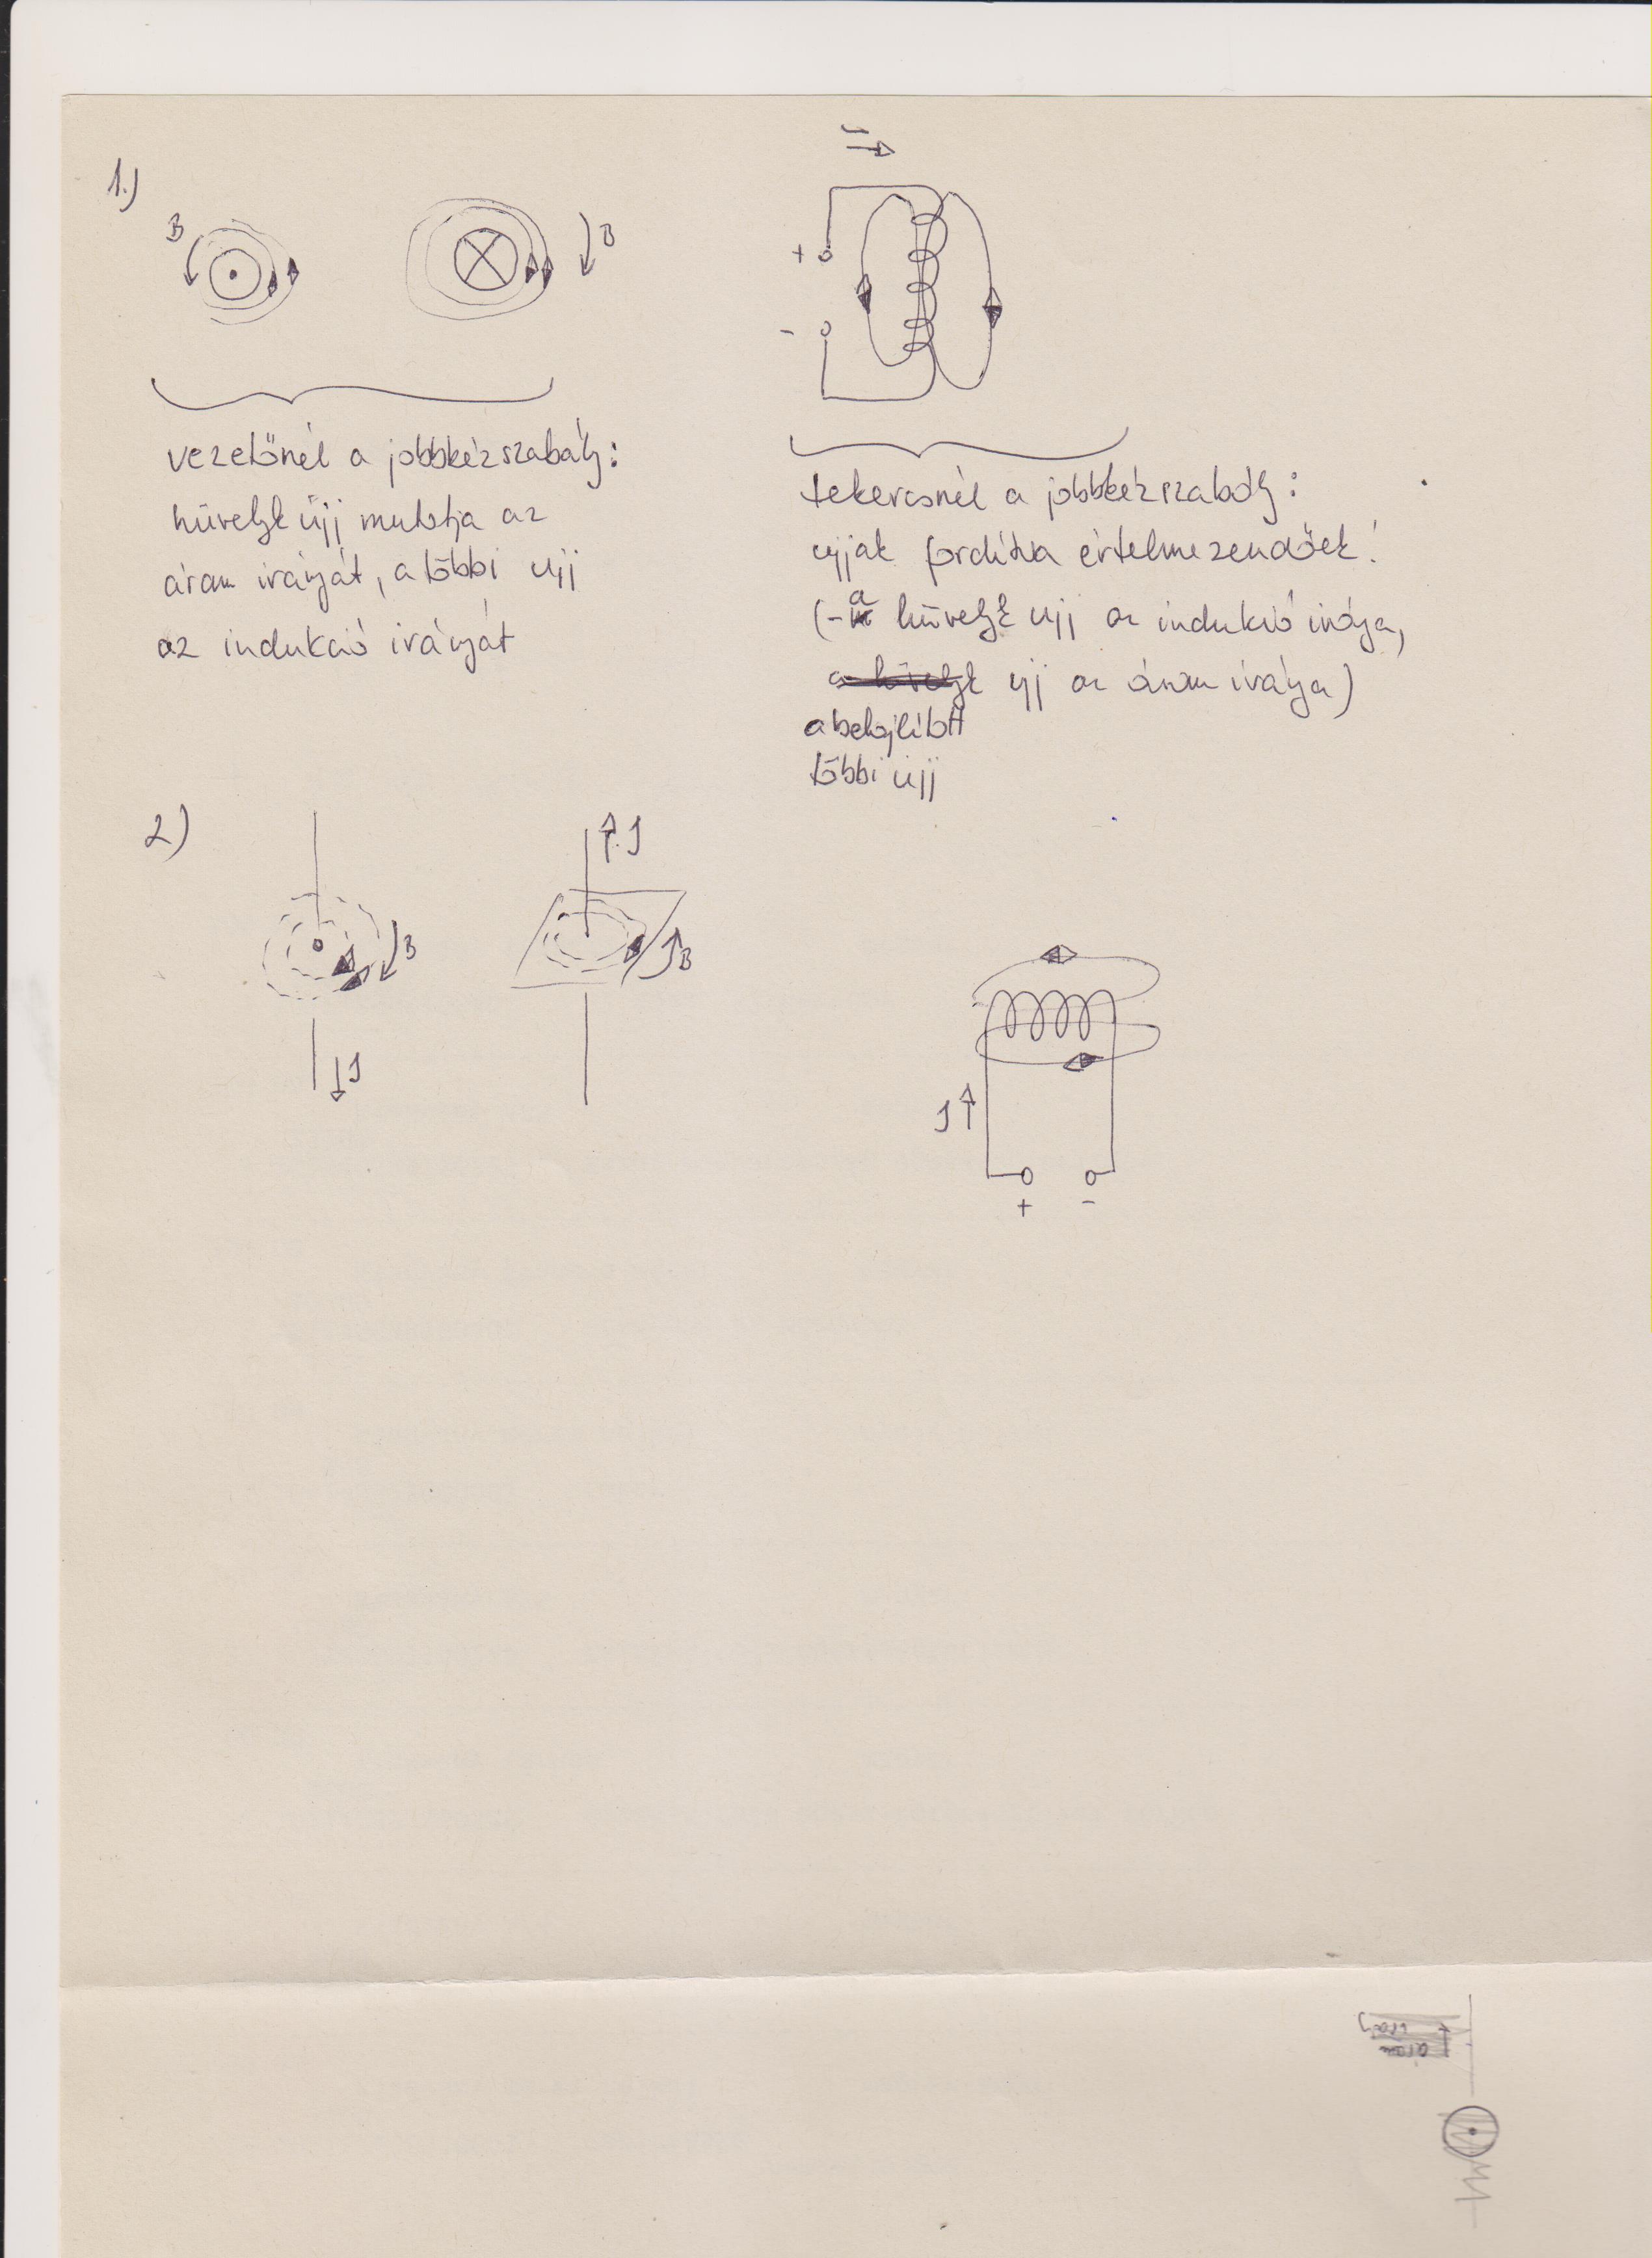 1.)
B
B
I
+
-
vezetőnél a jobbkézszabály:
hüvelyk ujj mutatja az
áram irányát, a többi ujj
az indukció irányát
tekercsnél a jobbkézszabály:
ujjak fordítva értelmezendőek!
(- a hüvelyk ujj az indukció iránya,
a hüvelyk ujj az áram iránya)
a behajlított
többi ujj
2)
I
B
B
I
I
+ -
áram